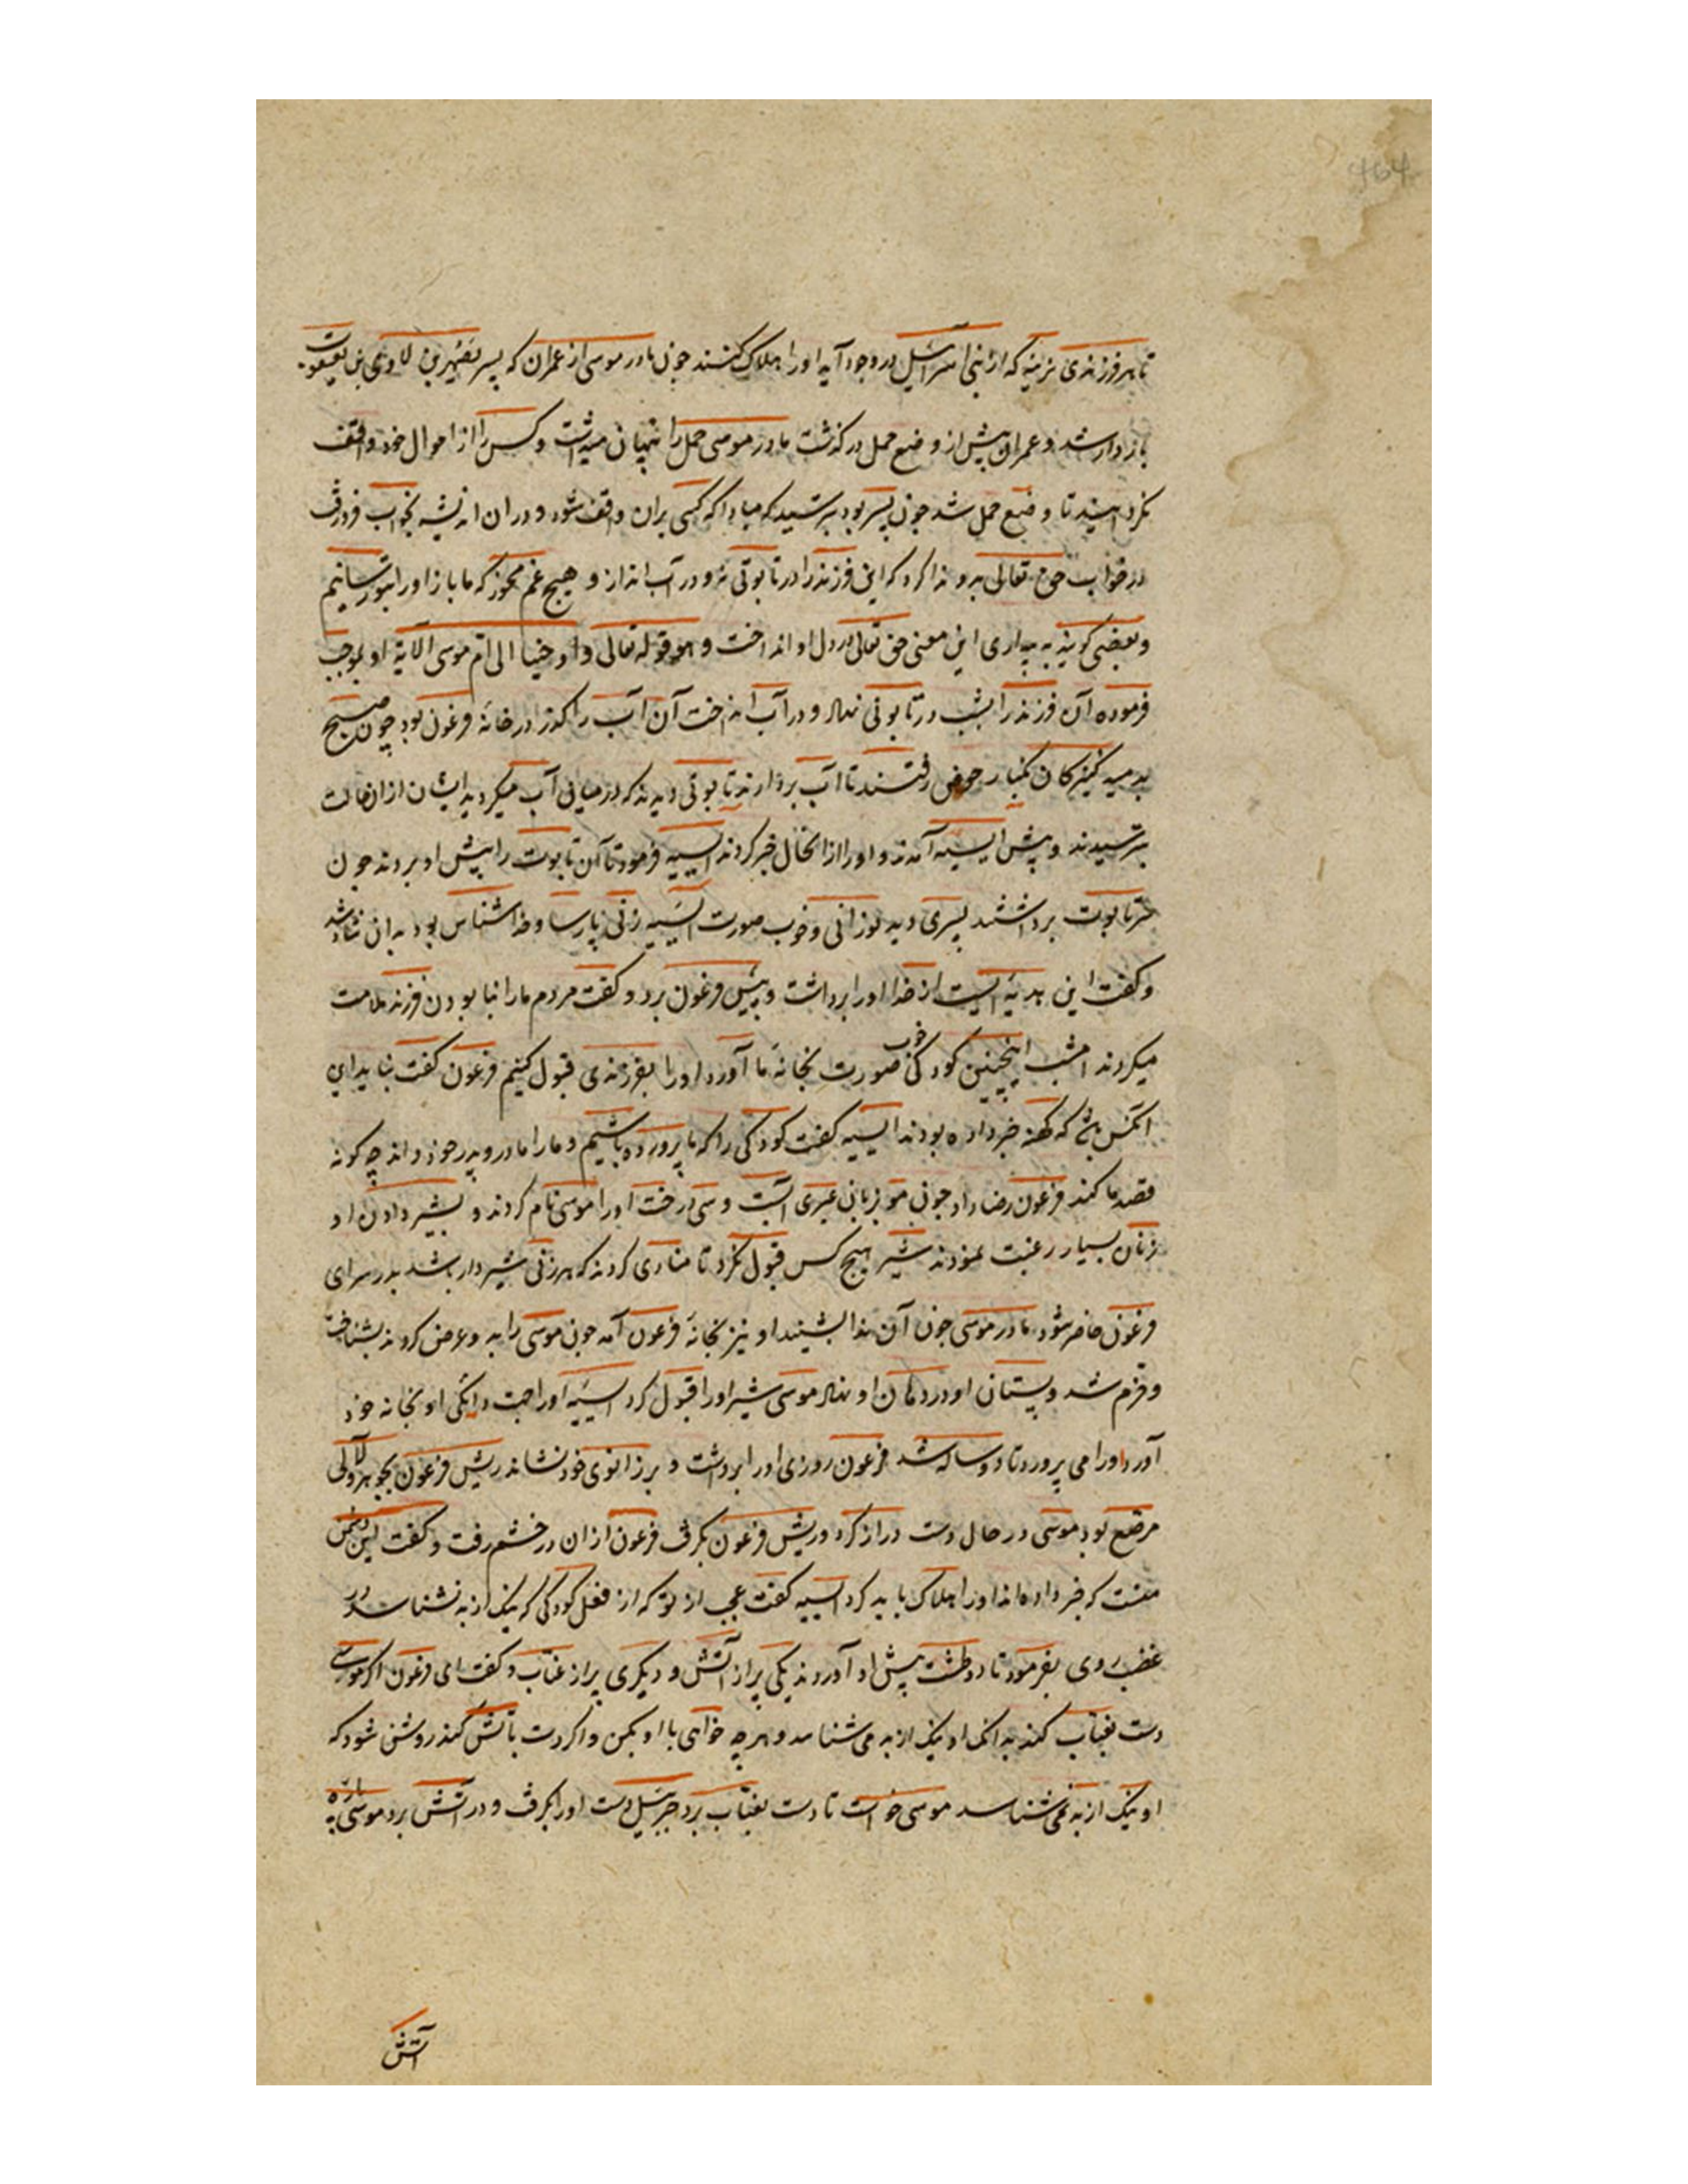 464
تا هر فرزندی نرینه که از بنی اسرائیل در وجود آید او را هلاک کنند چون مادر موسی از عمران که پسر یصهر بن لاوی بن یعقوبست
باردار شد و عمران پیش از وضع حمل درگذشت مادر موسی حمل را پنهان میداشت و کس را از احوال خود واقف
نکردانید تا وضع حمل شد چون پسر بود بترسید که مبادا که کسی بران واقف شود و در ان اندیشه بخواب فرو رفت
در خواب حق تعالی بدو ندا کرد که این فرزند را در تابوتی نه و در آب انداز و هیچ غم مخور که ما باز او را بتو رسانیم
و بعضی کویند به بیداری این معنی حق تعالی در دل او انداخت و هو قوله تعالی و اوحینا الی ام موسی الآیة او بموجب
فرموده آن فرزند را بشب در تابوتی نهاد و در آب انداخت آن آب را گذر در خانهٔ فرعون بود چون صبح
بدمید کنیزکان بکنار حوض رفتند تا آب بردارند تابوتی دیدند که در میان آب میکردید ایشان از ان حالت
بترسیدند و پیش ایسیه آمدند و او را از انحال خبر کردند ایسیه فرمود تا آن تابوت را پیش او بردند چون
سر تابوت برداشتند پسری دید نورانی و خوب صورت ایسیه زنی پارسا و خداشناس بود بدان شاد شد
و کفت این هدیهٔ ایست از خدا او را برداشت و پیش فرعون برد و کفت مردم ما را بنابودن فرزند ملامت
میکردند امشب اینچنین کودکی خوب صورت بخانهٔ ما آورد او را بفرزندی قبول کنیم فرعون کفت نباید این
انکس باشد که کهنه خبر داده بودند ایسیه کفت کودکی را که ما پرورده باشیم و ما را مادر و پدر خود داند چه کونه
قصد ما کند فرعون رضا داد چون مو بزبان عبری آبست و سی درخت او را موسی نام کردند و بشیر دادن او
زنان بسیار رغبت نمودند شیر هیچ کس قبول نکرد تا منادی کردند که هر زنی شیردار باشد بدر سرای
فرعون حاضر شود مادر موسی چون آن ندا بشنید او نیز بخانهٔ فرعون آمد چون موسی را بدو عرض کردند بشناخت
و خرم شد و پستان او در دهان او نهاد موسی شیر او را قبول کرد ایسیه او را جهت دایکی او بخانه خود
آورد او را می پرورد تا دو ساله شد فرعون روزی او را برداشت و بر زانوی خود نشاند ریش فرعون بجوهر و لآلی
مرصع بود موسی در حال دست دراز کرد و ریش فرعون بکرفت فرعون از ان در خشم رفت و کفت این دشمن
منست که خبر داده اند او را هلاک باید کرد ایسیه کفت عجب از تو که از فعل کودکی که نیک از بد نشناسد در
غضب روی بفرمود تا دو طشت پیش او آوردند یکی پر از آتش و دیکری پر از عناب و کفت ای فرعون اکر موسی
دست بعناب کند بدانک او نیک از بد می شناسد و هر چه خواهی با او بکن و اکر دست بآتش کند روشن شود که
او نیک از بد نمی شناسد موسی خواست تا دست بعناب برد جبرئیل دست او را بکرفت و در آتش برد موسی پارهٔ
آتش